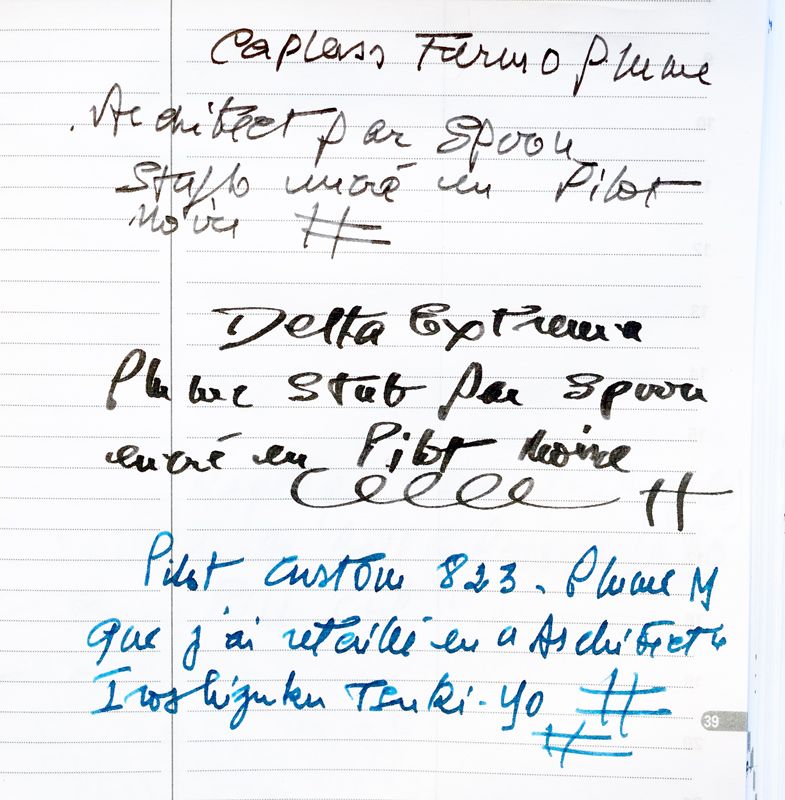 Capless Fermo Plume
Architect par Spoon
Stylo encré en Pilot
Noire #
Delta Extrema
Plume Stub par Spoon
encré en Pilot Noire
#
Pilot Custom 823. Plume M
que j'ai retaillé en "Architect"
Iroshizuku Tsuki-Yo #
#
39